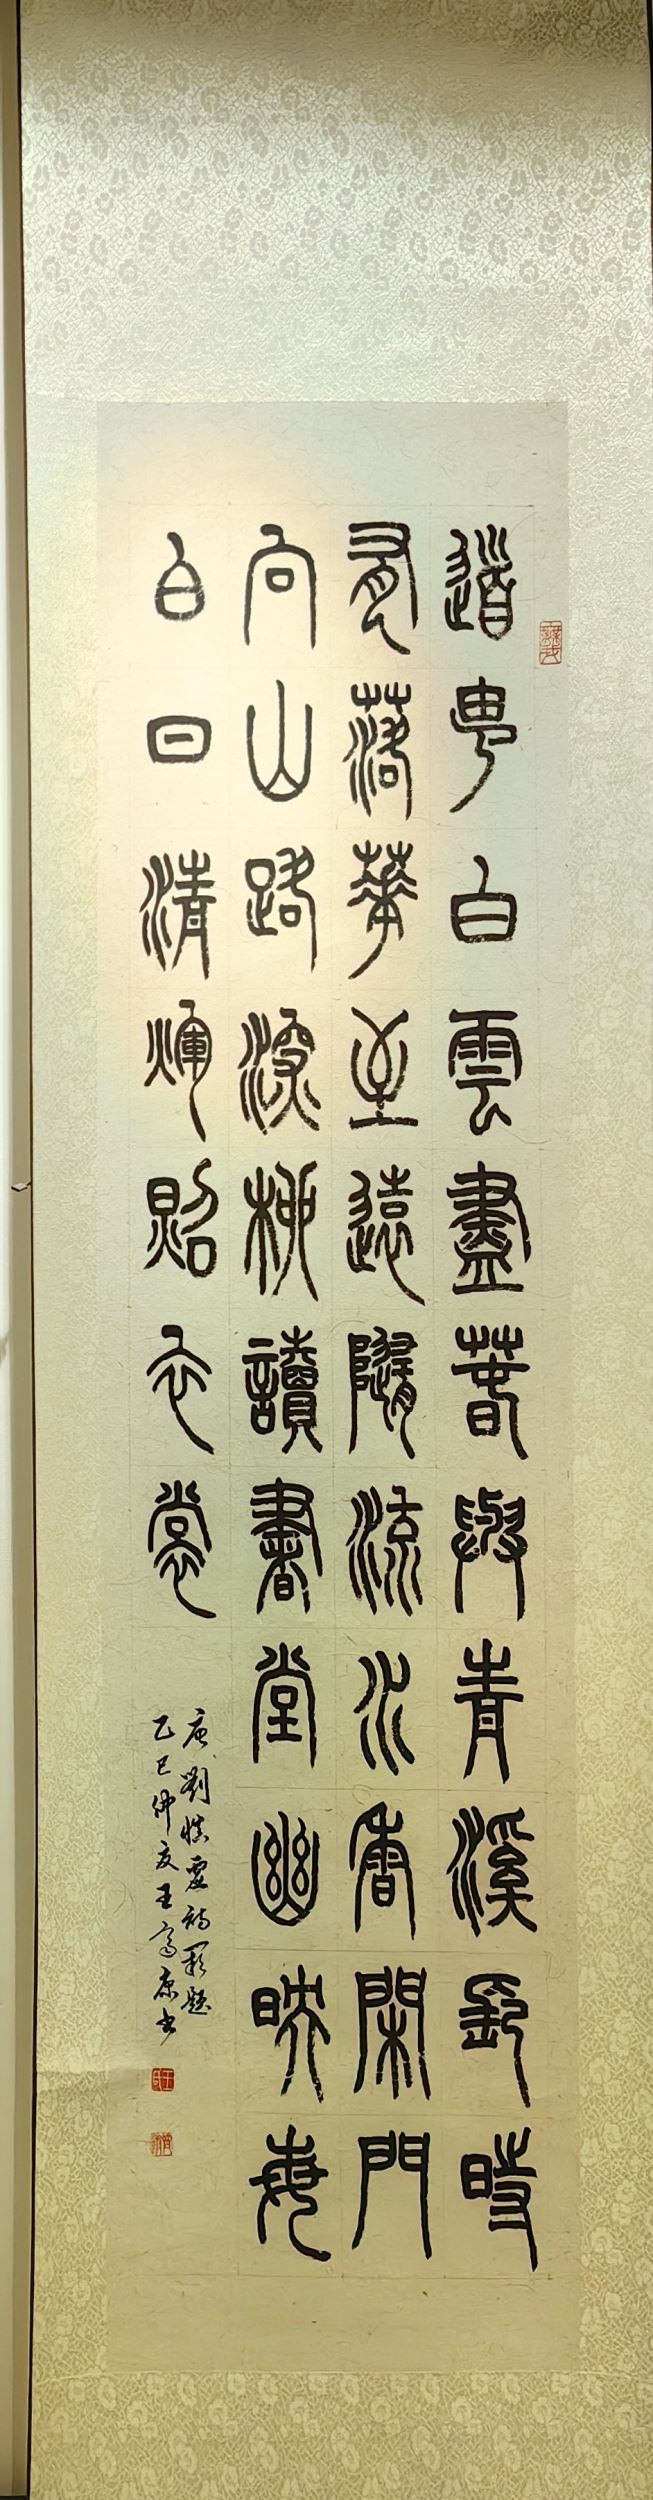 道由白雲盡春與青溪長時
有落華至遠隨流水香閑門
向山路深柳讀書堂幽映每
白日清煇照衣裳
唐劉慎虛詩闕題
乙巳仲夏王康书